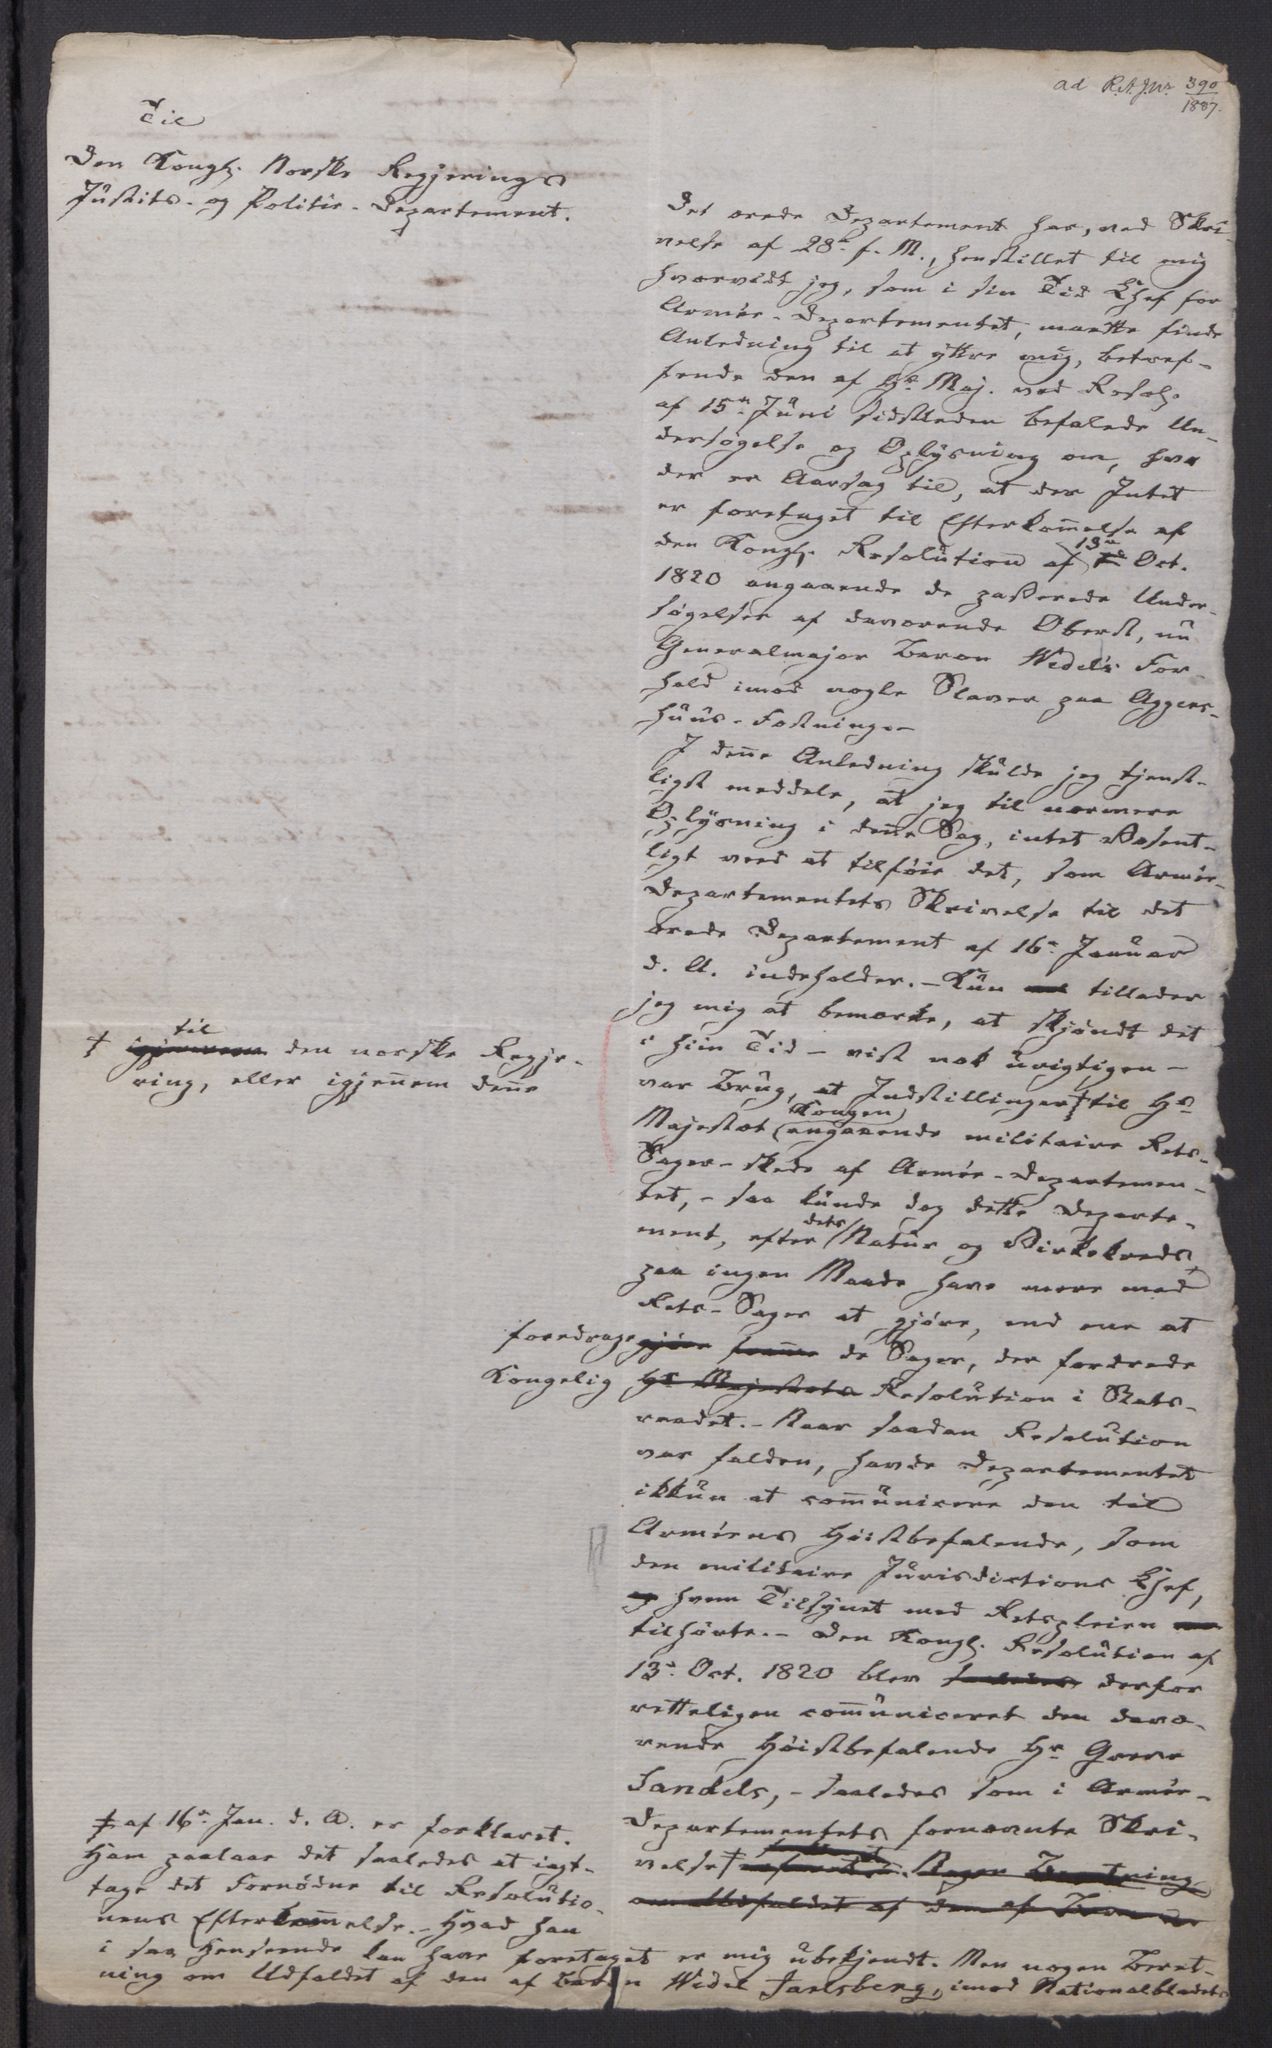 ad R.A.J.Nr. 390/1887.
Til
Den Kongl. Norske Regjerings
Justits- og Politie-Departement.
Det ærede Departement har, ved Skri-
velse af 28de f. M., henstillet til mig
hvorvidt jeg, som i sin Tid Chef for
Armée-Departementet, maatte finde
Anledning til at yttre mig, betref-
fende den af Hs Maj. ved Resol.
af 15de Juni sidstleden befalede Un-
dersøgelse og Oplysning om, hva
der er Aarsag til, at der Intet
er foretaget til Efterkom̄else af
den Kongl. Resolution af 13de Oct.
1820 angaaende de passerede Under-
søgelser af daværende Oberst, nu
Generalmajor Baron Wedels For-
hold imod nogle Slaver paa Agger-
huus-Fæstning.-
I den̄e Anledning skulde jeg tjenst-
ligst meddele, at jeg til nærmere
Oplysning i den̄e Sag, intet Væsent-
ligt veed at tilføie det, som Armée-
Departementets Skrivelse til det
ærede Departement af 16de Januar
d. A. indeholder. - Kun tillader
jeg mig at bemærke, at skjøndt det
i hiin Tid - vist nok urigtigen -
var Brug, at Indstillinger † til Hs
Majestæt Kongen angaaende militaire Rets-
Sager - skede af Armée-Departemen-
tet, - saa kunde dog dette Departe-
ment, efter dets Natur og Virkekreds
paa ingen Maade have mere med
Rets-Sager at gjøre, end ene at
foredrage de Sager, der fordrede
Kongelig Hs Majestæts Resolution i Stats-
raadet. - Naar saadan Resolution
var falden, havde Departementet
ikkun at com̄unicere den til
Arméens Høistbefalende, som
den militaire Jurisdictions Chef,
og hvem Tilsynet med Retspleien
tilhørte. - Den Kongl. Resolution af
13de Oct. 1820 blev derfor
retteligen com̄uniceret den davæ-
rende Høistbefalende Hr Greve
Sandels, - saaledes som i Armée-
Departementets fornævnte Skri-
velse † Nogen Beretning
om Udfaldet af den af Baron
† til den norske Regje-
ring, eller igjen̄em den̄e
‡ af 16de Jan. d. A. er forklaret.
Ham paalaae det saaledes at iagt-
tage det Fornødne til Resolutio-
nens Efterkom̄else. - Hvad han
i saa Henseende kan have foretaget er mig ubekjendt. Men nogen Beret-
ning om Udfaldet af den af Baron Wedel Jarlsberg, imod Nationalbladets